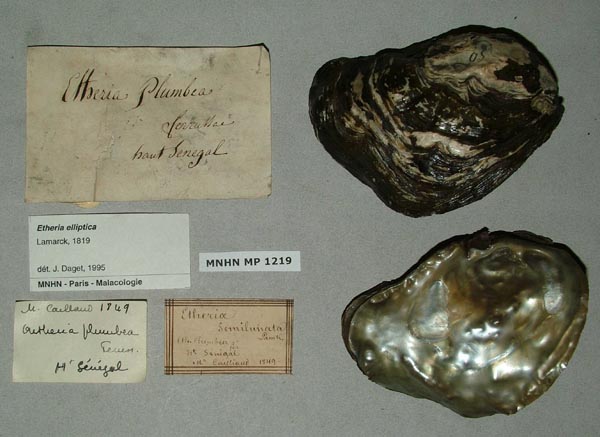 Etheria Plumbea
ferussac
haut Sénégal
Etheria elliptica
Lamarck, 1819
dét. J. Daget, 1995
MNHN - Paris - Malacologie
MNHN MP 1219
M. Caillaud 1849
plumbea
Feruss.
Ht Sénégal
Etheria
Semilunata
Lamk.
Ht Sénégal
Mr Cailliaud 1849